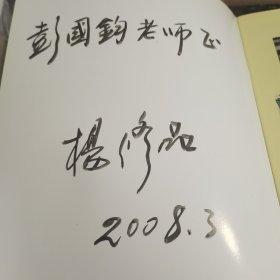 彭國鈞老师正
楊修品
2008.3